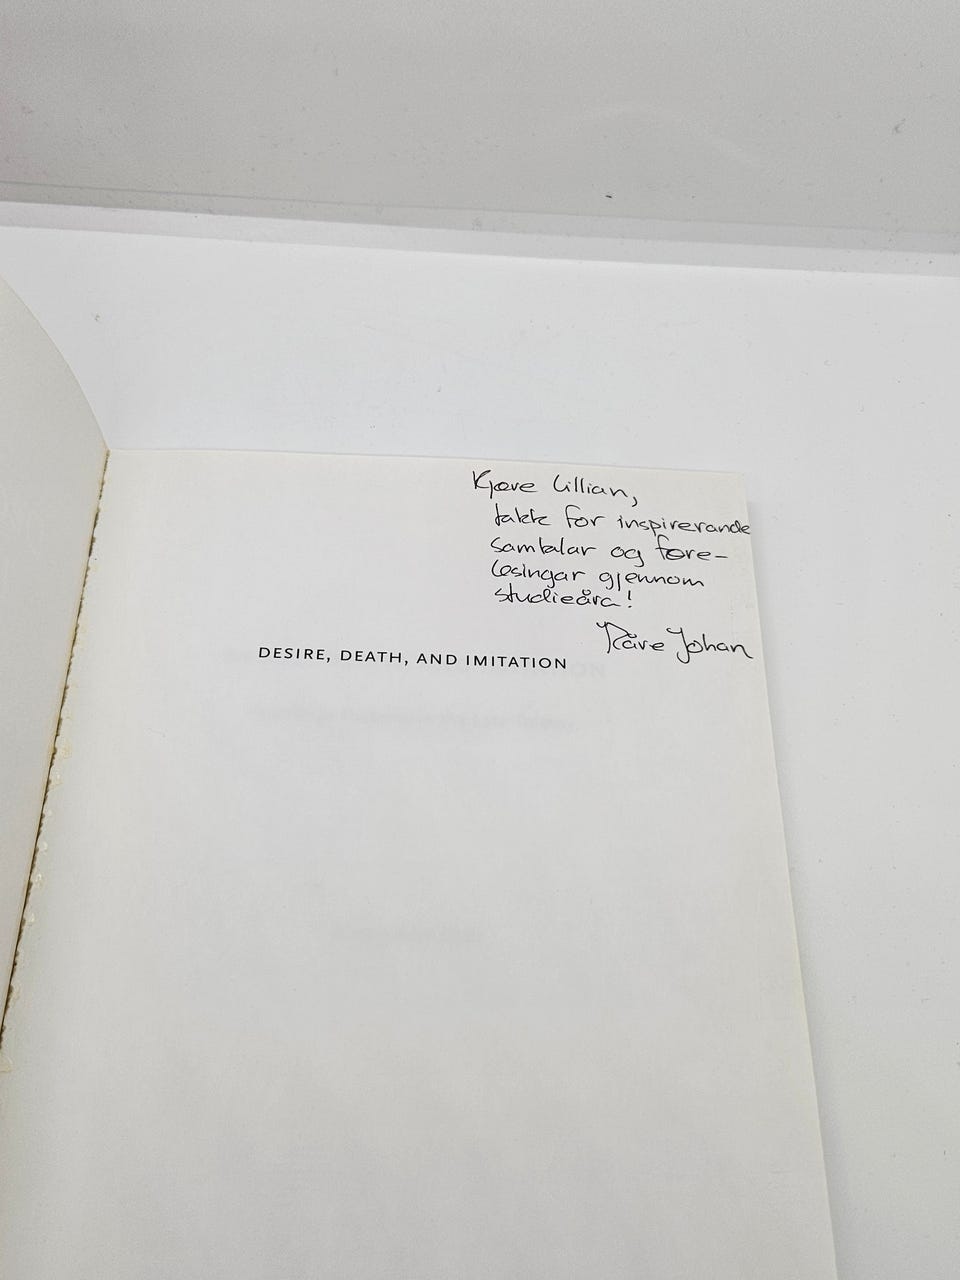 Kjære Lillian,
takk for inspirerande
samtalar og føre-
lesingar gjennom
studieåra!
Kåre Johan
DESIRE, DEATH, AND IMITATION